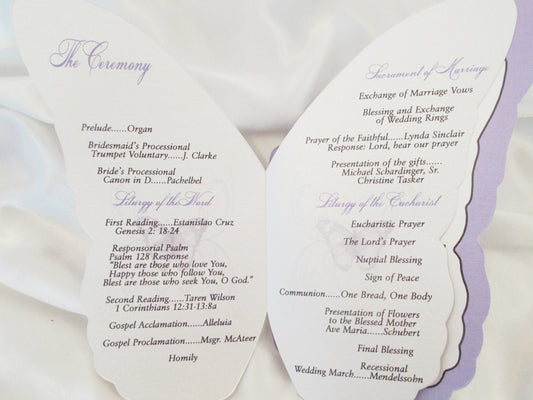 The Ceremony
Prelude......Organ
Bridesmaid's Processional
Trumpet Voluntary.....J. Clarke
Bride's Processional
Canon in D......Pachelbel
Liturgy of the Word
First Reading......Estanislao Cruz
Genesis 2: 18-24
Responsorial Psalm
Psalm 128 Response
"Blest are those who love You,
Happy those who follow You,
Blest are those who seek You, O God."
Second Reading......Taren Wilson
1 Corinthians 12:31-13:8a
Gospel Acclamation......Alleluia
Gospel Proclamation......Msgr. McAteer
Homily
Sacrament of Marriage
Exchange of Marriage Vows
Blessing and Exchange
of Wedding Rings
Prayer of the Faithful......Lynda Sinclair
Response: Lord, hear our prayer
Presentation of the gifts......
Michael Schardinger, Sr.
Christine Tasker
Liturgy of the Eucharist
Eucharistic Prayer
The Lord's Prayer
Nuptial Blessing
Sign of Peace
Communion......One Bread, One Body
Presentation of Flowers
to the Blessed Mother
Ave Maria......Schubert
Final Blessing
Recessional
Wedding March......Mendelssohn